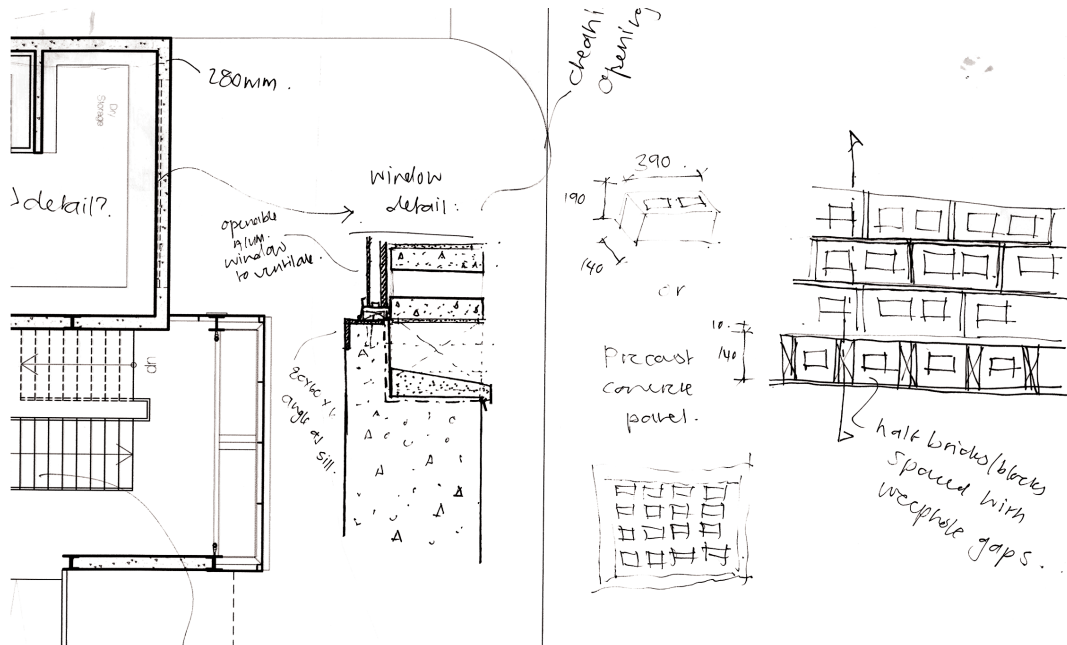 280mm.
Dry
Storage
detail?
dn
window
detail:
openable
alum.
window
to ventilate.
angle as
sill.
opening
390
190
140
or
precast
concrete
panel.
10
140
half bricks/blocks
spaced with
weephole gaps...